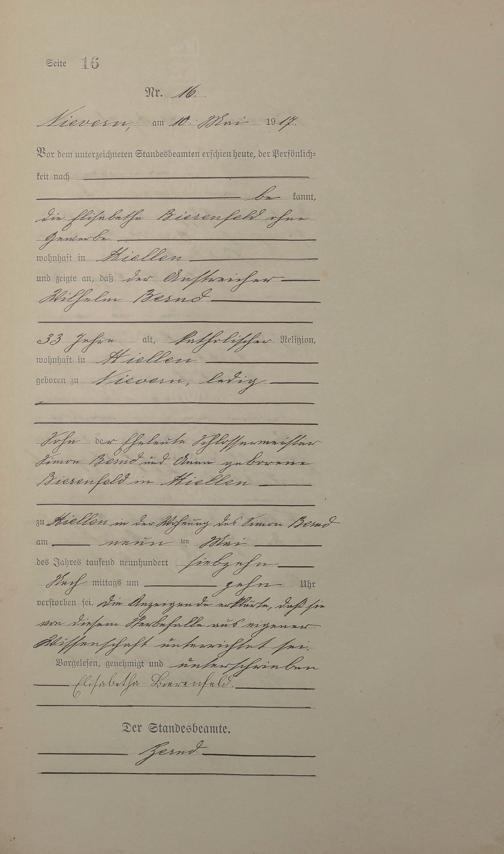 Seite 16
Nr. 16.
Nievern, am 10. Mai 1917.
Vor dem unterzeichneten Standesbeamten erschien heute, der Persönlich-
keit nach
be kannt,
die Elisabetha Bierenfeld ohne
Gewerbe
wohnhaft in Miellen
und zeigte an, daß der Anstreicher
Wilhelm Bernd
33 Jahre alt, katholischer Religion,
wohnhaft in Miellen
geboren zu Nievern, ledig
Sohn der Eheleute Schlossermeister
Simon Bernd und Anna geborene
Bierenfeld in Miellen
zu Miellen in der Wohnung des Simon Bernd
am neun ten Mai
des Jahres tausend neunhundert siebzehn
Nach mittags um zehn Uhr
verstorben sei. Die Anzeigende erklärte, daß sie
von diesem Sterbefalle aus eigener
Wissenschaft unterrichtet sei.
Vorgelesen, genehmigt und unterschrieben
Elisabetha Bierenfeld.
Der Standesbeamte.
Bernd